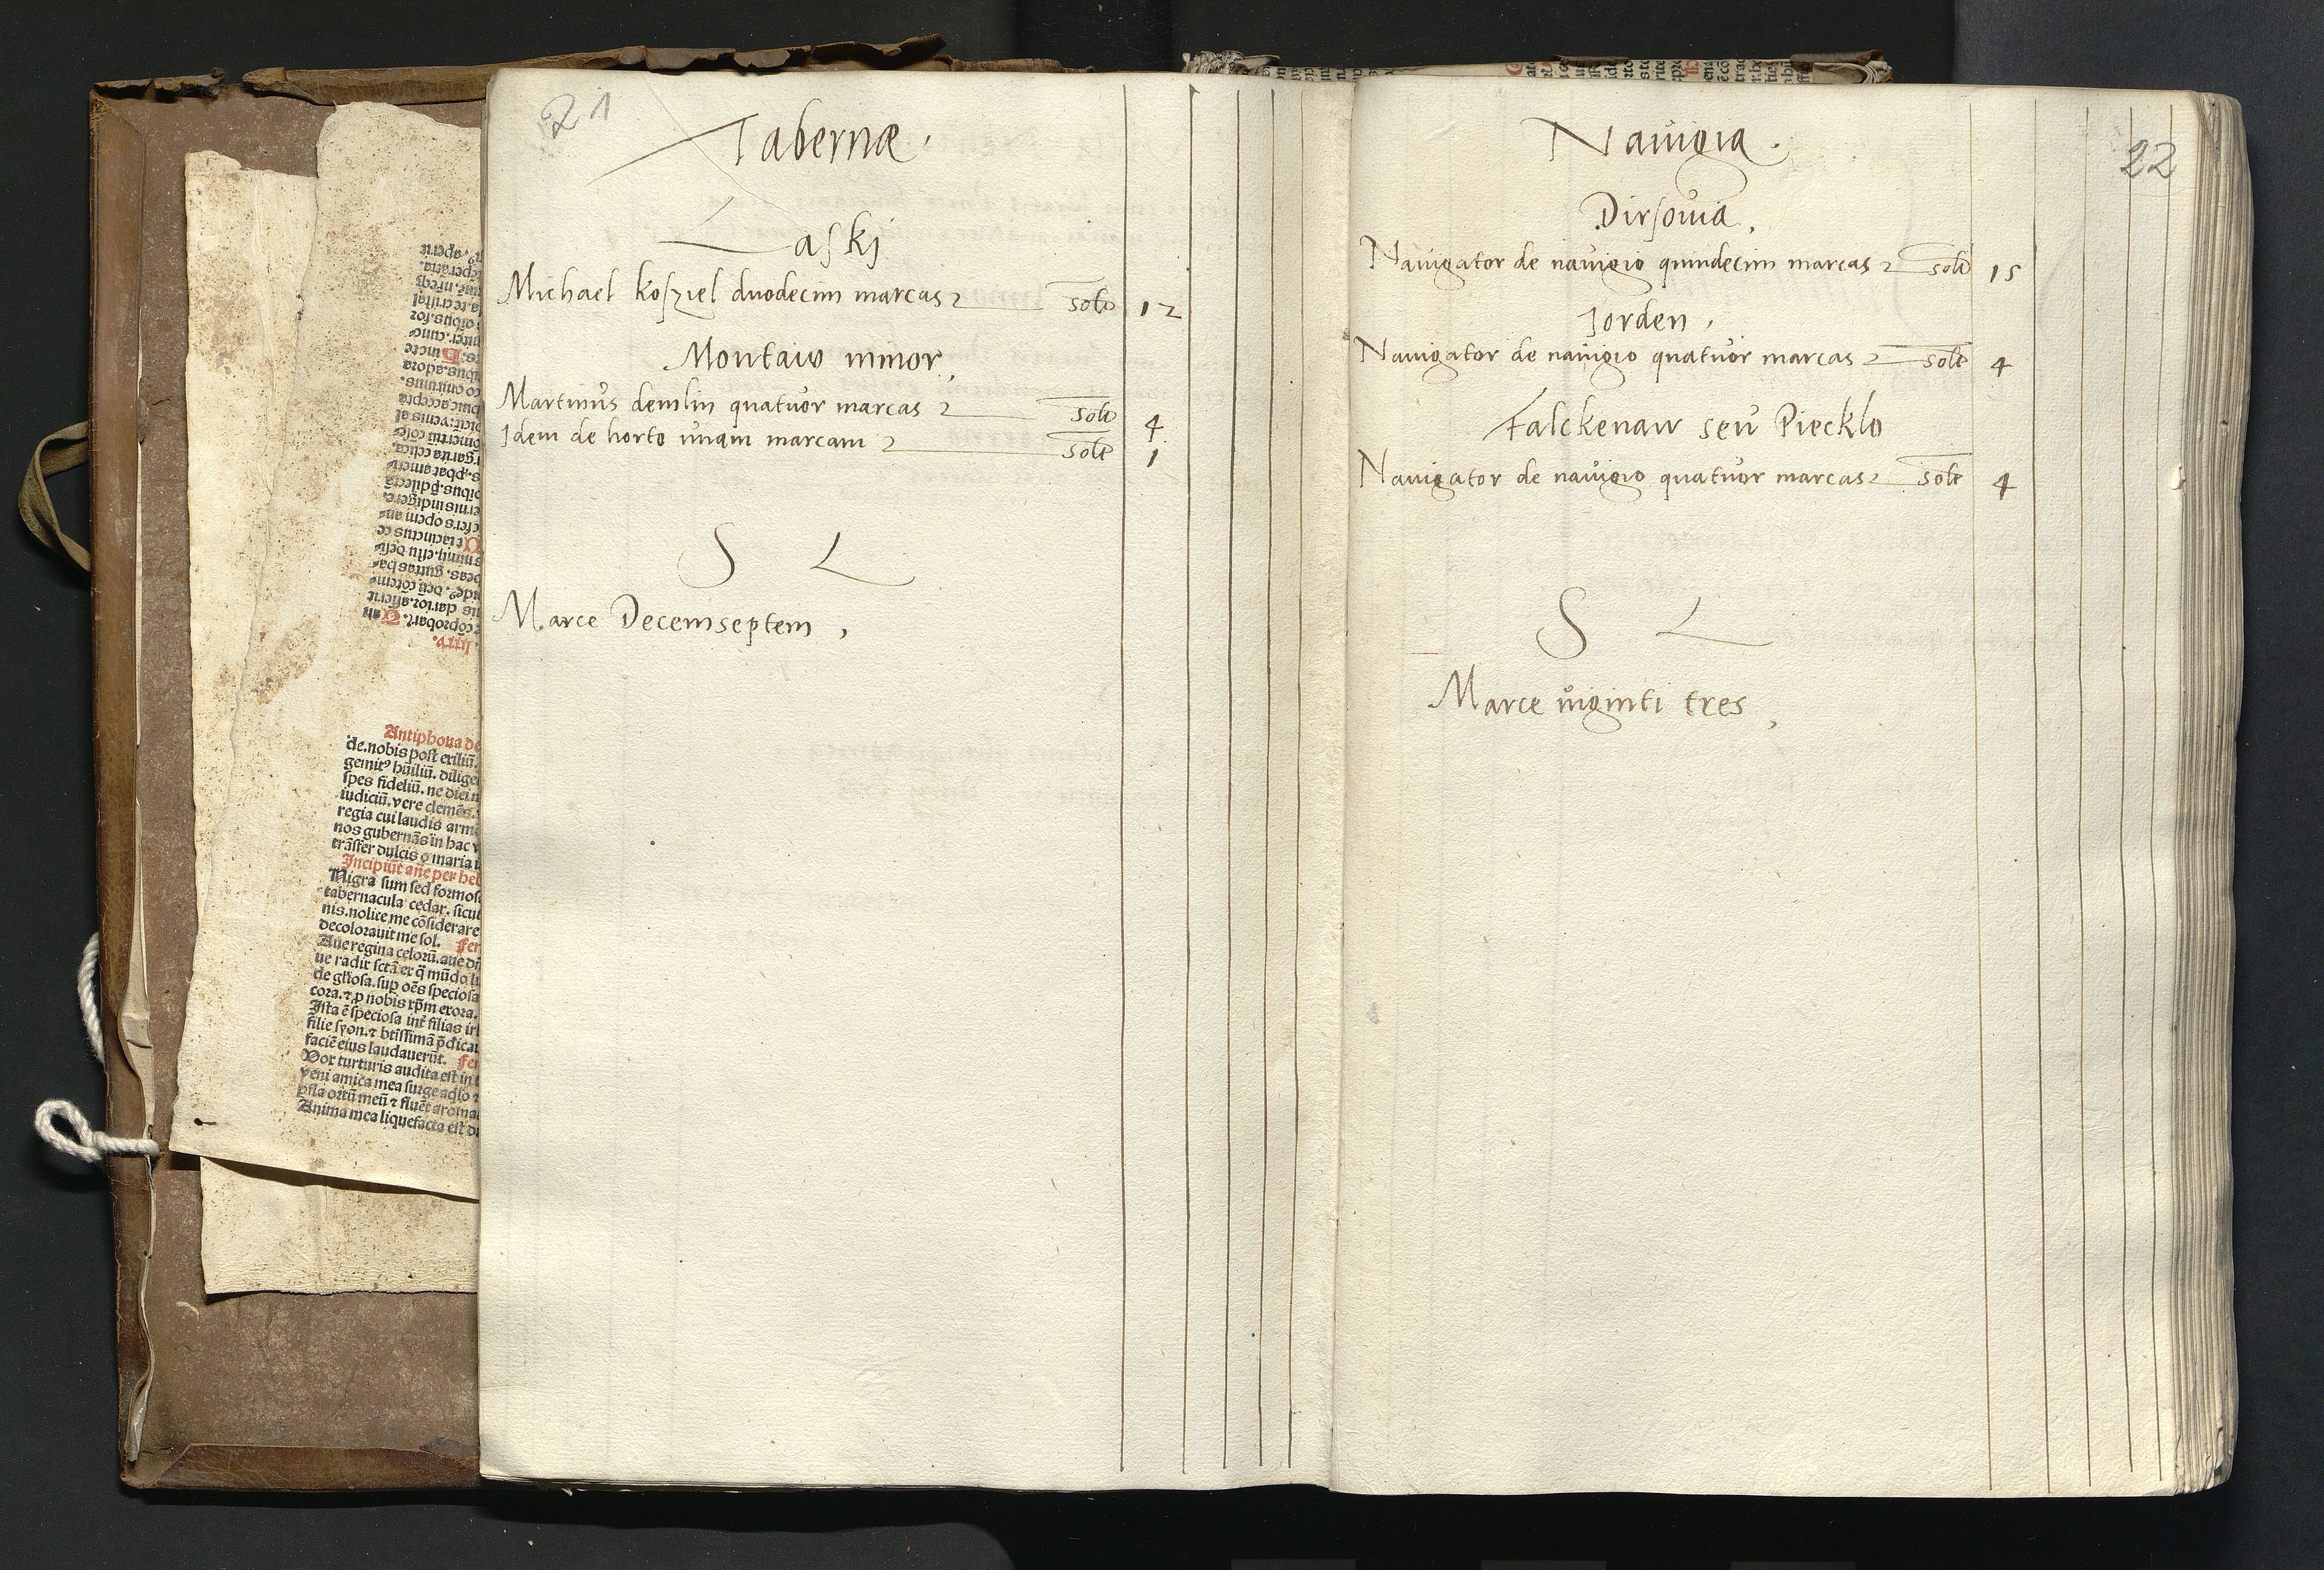 21
Tabernæ.
Laski
Michael koſziel duodecim marcas solt 12
Montaw minor,
Martinus demlin quatuor marcas solt 4
Idem de horto unam marcam solt 1
S L
Marce Decemseptem,
22
Nauigia.
Dirſouia,
Nauigator de nauigio quindecim marcas solt 15
Jorden,
Nauigator de nauigio quatuor marcas solt 4
Falckenaw seu Piecklo
Nauigator de nauigio quatuor marcas solt 4
S L
Marce uiginti tres,
Antiphona de
de.nobis post exiliũ.
gemit⁹ hũiliũ. dilige
spes fideliũ. ne diei
iudiciũ. vere clemẽs.
regia cui laudis arm
nos gubernãs in hac v
trãsfer dulcis o maria
Incipiũt añe per heb
Nigra sum sed formos
tabernacula cedar. sicut
nis. nolite me cõsiderare
decolorauit me sol. Fer
Aue regina celorũ. aue dñ
ue radix sctã ex q̃ mũdo lu
de gl'iosa. sup oẽs speciosa
cora. ⁊ p nobis xp̃m exora.
Ista ẽ speciosa int' filias
filie syon. ⁊ btissimã p̃dica
faciẽ eius laudauerũt. Fer
Vox turturis audita est in
veni amica mea surge
Anima mea liquefacta est